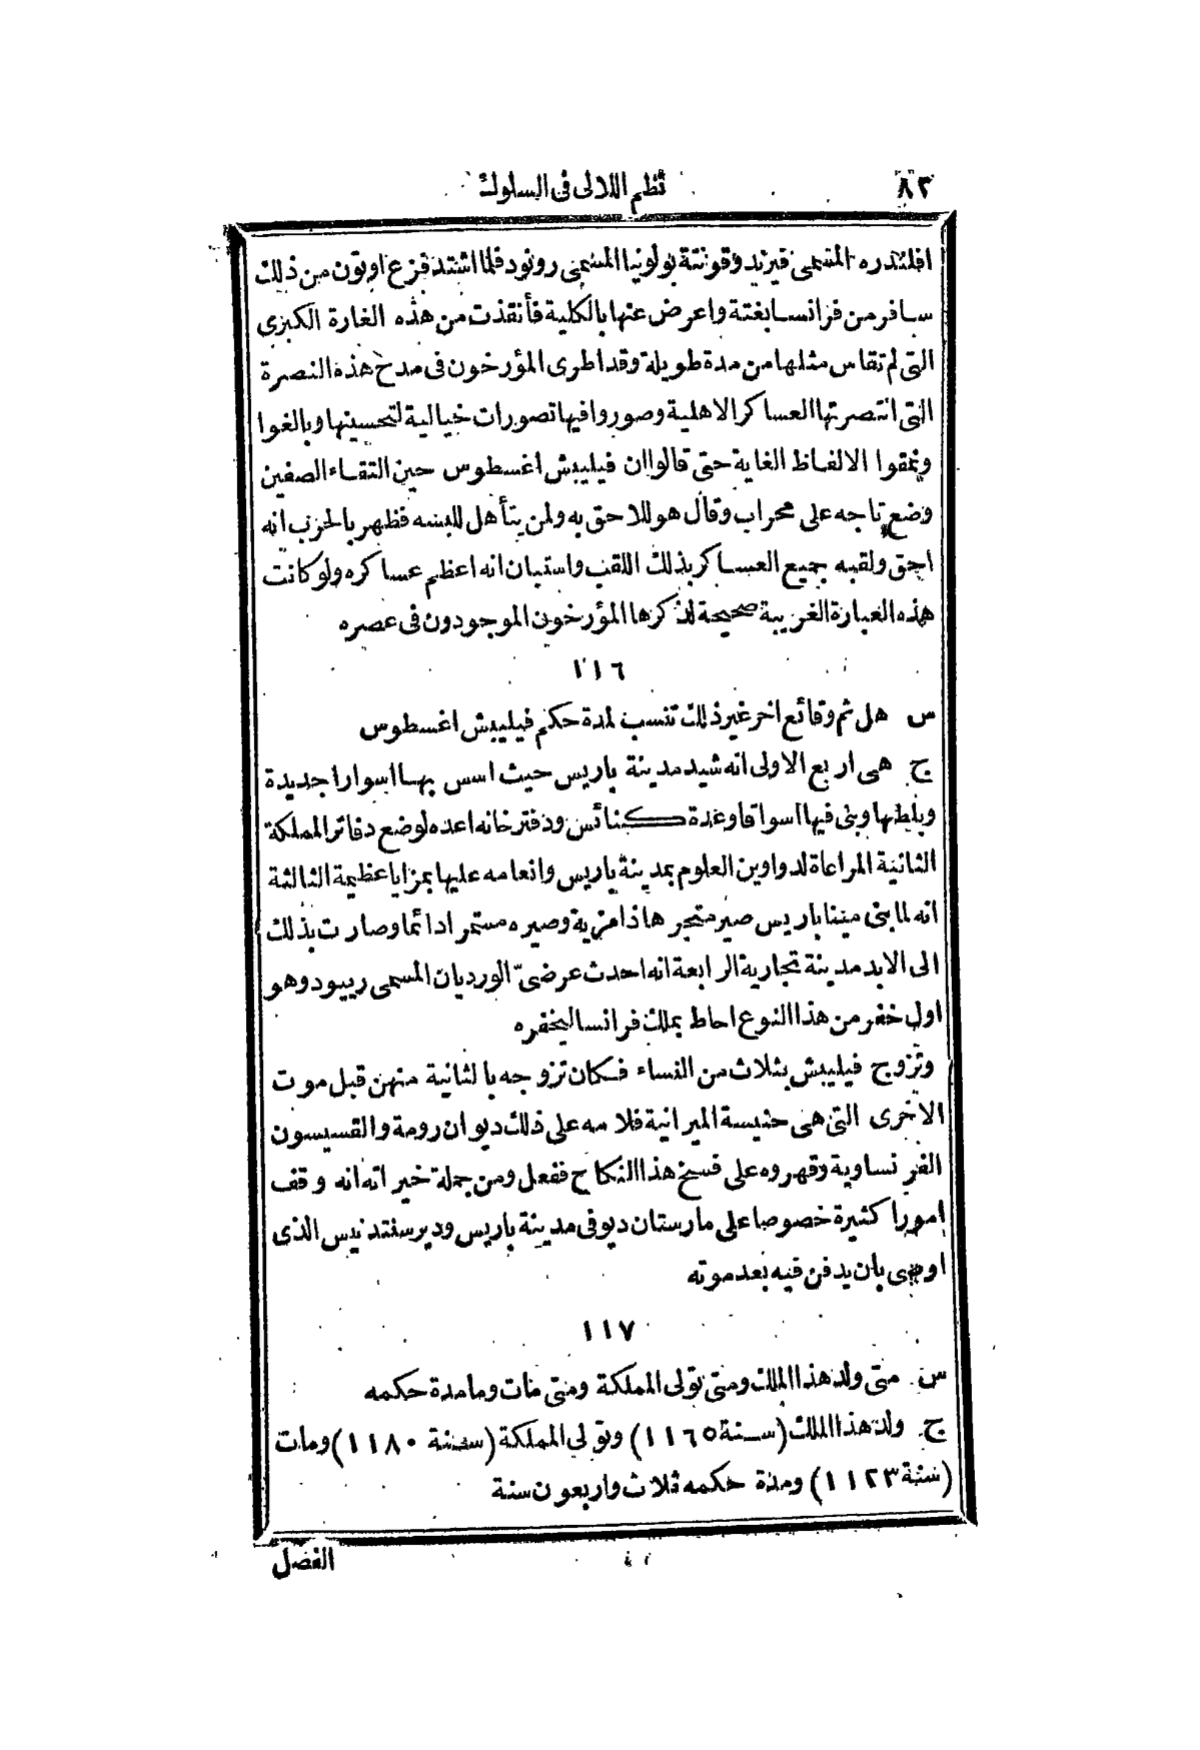 ٨٢
نظم اللالى فى السلوك
افلندره المسمى فيرند وقونتة بولونيا المسمى رونود فلما اشتد فزع اوتون من ذلك
سافر من فرانسا بغتة واعرض عنها بالكلية فأنقذت من هذه الغارة الكبرى
التى لم تقاس مثلها من مدة طويلة وقد اطرى المؤرخون فى مدح هذه النصرة
التى انتصرتها العساكر الاهلية وصوروا فيها تصورات خيالية لتحسينها وبالغوا
ونمقوا الالفاظ الغاية حتى قالوا ان فيليبش اغسطوس حين التقاء الصفين
وضع تاجه على محراب وقال هو للاحق به ولمن يتأهل للبسه فظهر بالحرب انه
احق ولقبه جميع العساكر بذلك اللقب واستبان انه اعظم عساكره ولو كانت
هذه العبارة الغريبة صحيحة لذكرها المؤرخون الموجودون فى عصره
١١٦
س هل ثم وقائع اخر غير ذلك تنسب لمدة حكم فيليبش اغسطوس
ج هى اربع الاولى انه شيد مدينة باريس حيث اسس بها اسوارا جديدة
وبلطها وبنى فيها اسواقا وعدة كنائس ودفترخانه اعده لوضع دفاتر المملكة
الثانية المراعاة لدواوين العلوم بمدينة باريس وانعامه عليها بمزايا عظيمة الثالثة
انه لما بنى مينا باريس صير متجرها ذا مزية وصيره مستمرا دائما وصارت بذلك
الى الابد مدينة تجارية الرابعة انه احدث عرضىّ الورديان المسمى ريبود وهو
اول خفر من هذا النوع احاط بملك فرانسا ليخفره
وتزوج فيليبش بثلاث من النساء فكان تزوجه بالثانية منهن قبل موت
الاخرى التى هى حنيسة الميرانية فلامه على ذلك ديوان رومة والقسيسون
الفرنساوية وقهروه على فسخ هذا النكاح ففعل ومن جملة خيراته انه وقف
امورا كثيرة خصوصا على مارستان ديو فى مدينة باريس ودير سنتدنيس الذى
اوصى بان يدفن فيه بعد موته
١١٧
س متى ولد هذا الملك ومتى تولى المملكة ومتى مات وما مدة حكمه
ج ولد هذا الملك (سنة ١١٦٥) وتولى المملكة (سنة ١١٨٠) ومات
(سنة ١١٢٣) ومدة حكمه ثلاث واربعون سنة
الفصل